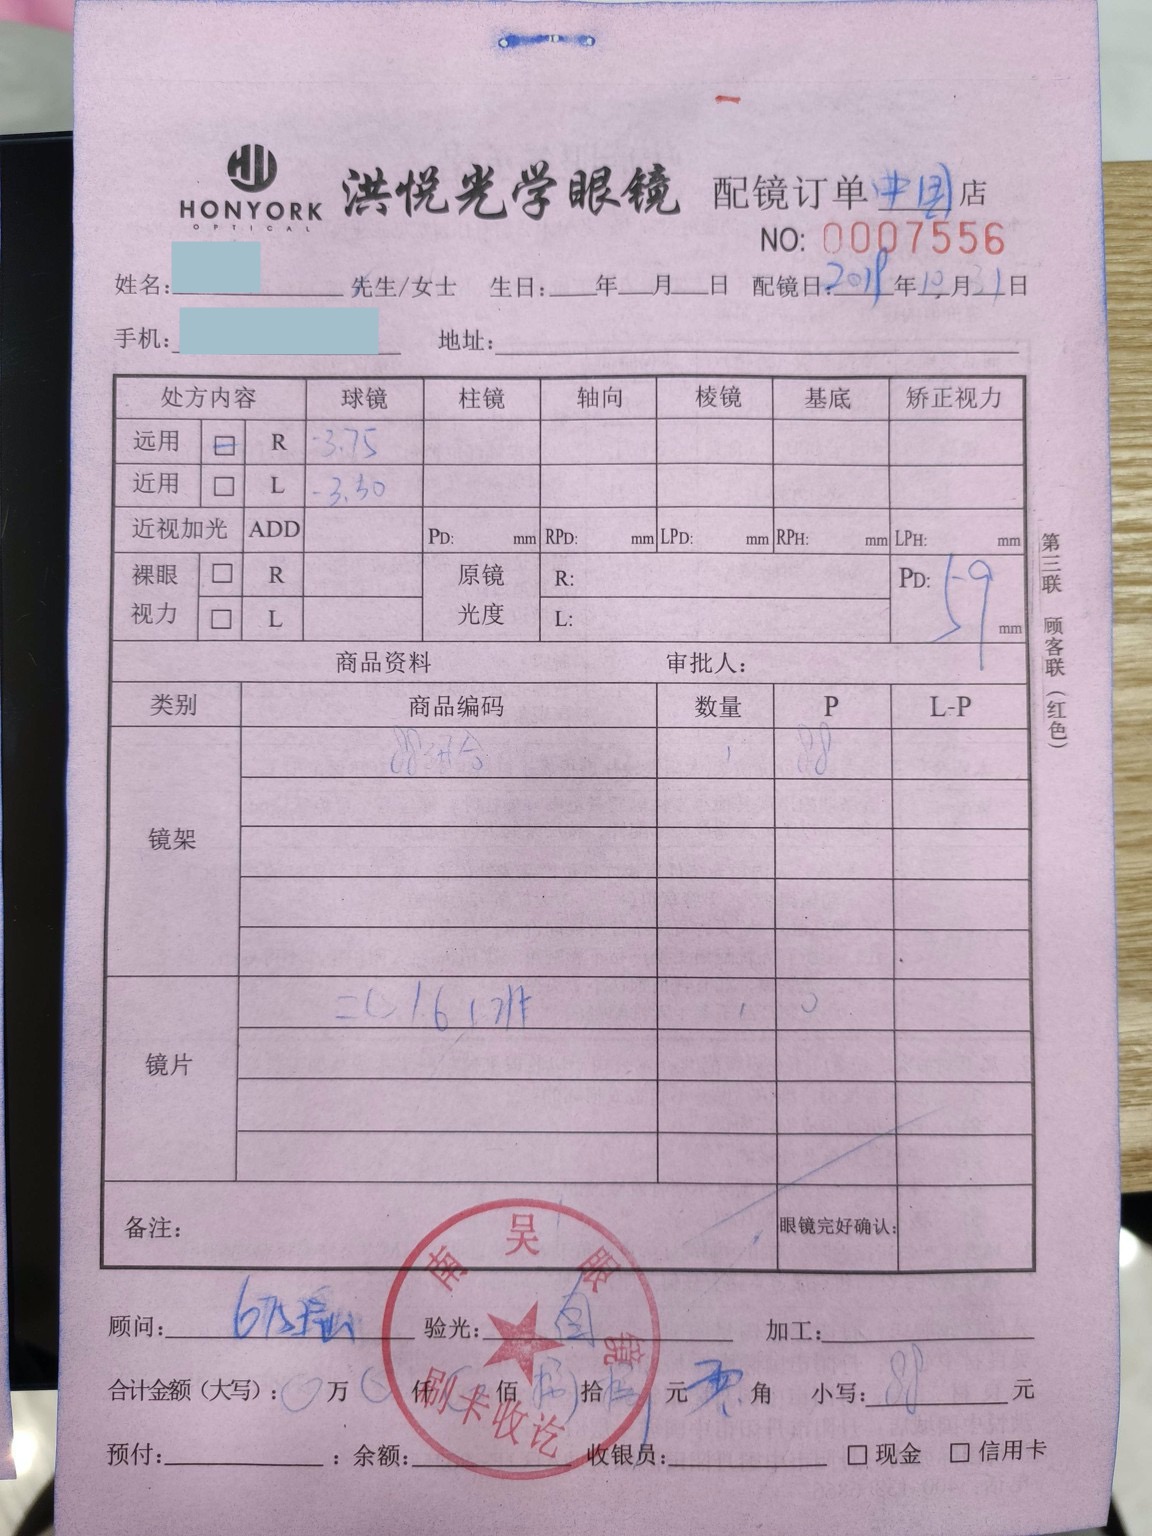 HONYORK
OPTICAL
洪悦光学眼镜 配镜订单 中国 店
NO: 0007556
姓名: 先生/女士 生日: 年 月 日 配镜日: 2019 年 10 月 31 日
手机: 地址:
处方内容 球镜 柱镜 轴向 棱镜 基底 矫正视力
远用 R -3.75
近用 □ L -3.50
近视加光 ADD PD: mm RPD: mm LPD: mm RPH: mm LPH: mm
裸眼视力 □ R 原镜光度 R: PD: 59 mm
□ L L:
商品资料 审批人:
类别 商品编码 数量 P L-P
镜架 88 1 88
镜片 1.6 1 0
备注: 眼镜完好确认:
顾问: 验光: 加工:
合计金额(大写): 万 仟 佰 捌 拾 捌 元 零 角 小写: 88 元
预付: : 余额: 收银员: □ 现金 □ 信用卡
第三联 顾客联(红色)
南吴眼镜
刷卡收讫